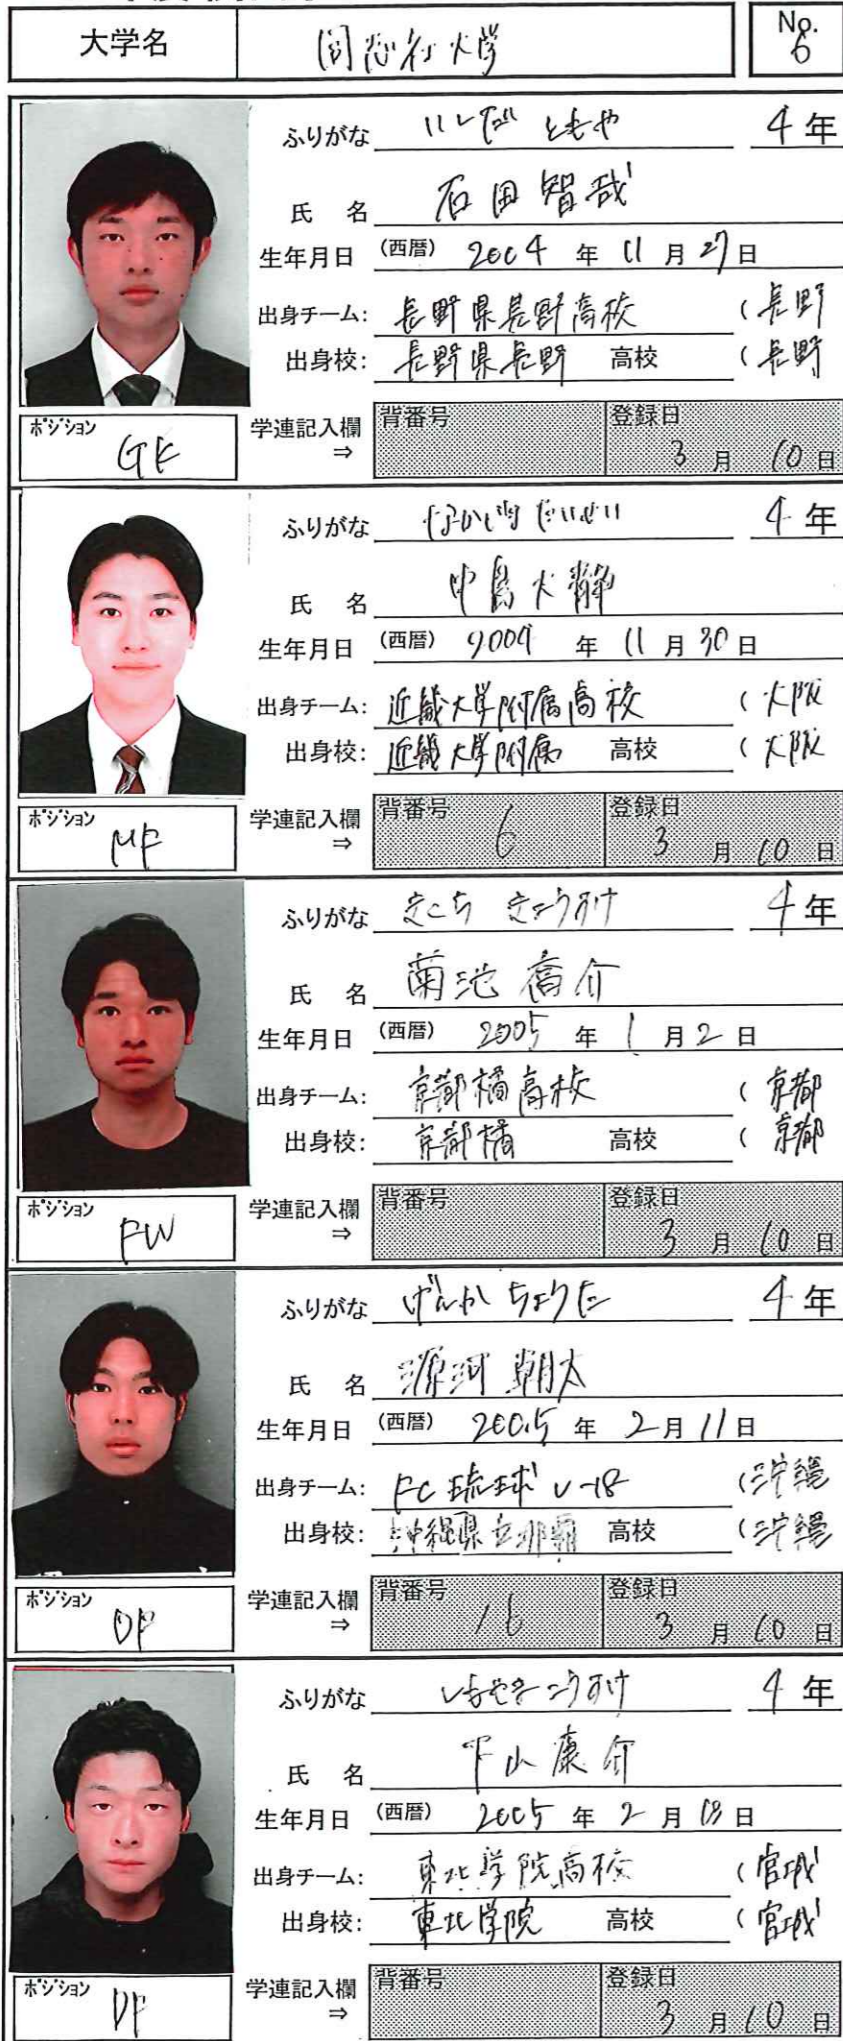 大学名 同志社大学 No. 6
ふりがな いしだ ともや 4年
氏 名 石田智哉
生年月日 (西暦) 2004 年 11 月 27 日
出身チーム: 長野県長野高校 (長野
出身校: 長野県長野 高校 (長野
ポジション GK 学連記入欄 ⇒ 背番号 登録日 3 月 10 日
ふりがな なかじま たいせい 4年
氏 名 中島大静
生年月日 (西暦) 2004 年 11 月 30 日
出身チーム: 近畿大学附属高校 (大阪
出身校: 近畿大学附属 高校 (大阪
ポジション MF 学連記入欄 ⇒ 背番号 6 登録日 3 月 10 日
ふりがな きくち きょうすけ 4年
氏 名 菊池 喬介
生年月日 (西暦) 2005 年 1 月 2 日
出身チーム: 京都橘高校 (京都
出身校: 京都橘 高校 (京都
ポジション FW 学連記入欄 ⇒ 背番号 登録日 3 月 10 日
ふりがな げんか ちょうた 4年
氏 名 源河 朝太
生年月日 (西暦) 2005 年 2 月 11 日
出身チーム: FC琉球 U-18 (沖縄
出身校: 沖縄県立那覇 高校 (沖縄
ポジション DF 学連記入欄 ⇒ 背番号 16 登録日 3 月 10 日
ふりがな こうすけ 4年
氏 名 下山 康介
生年月日 (西暦) 2005 年 2 月 日
出身チーム: 東北学院高校 (宮城
出身校: 東北学院 高校 (宮城
ポジション DF 学連記入欄 ⇒ 背番号 登録日 3 月 10 日